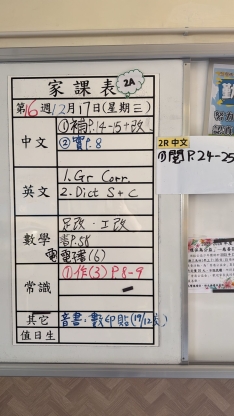 家課表
2A
第16週12月17日(星期三)
中文
①補P.14-15+改
②寳P.8
英文
1. Gr Corr.
2. Dict S + C
數學
足改.工改
書P.58
常識
①作(3) P 8-9
其它
音書.數印貼(19/12交)
值日生
2R 中文
①閱P.24-25